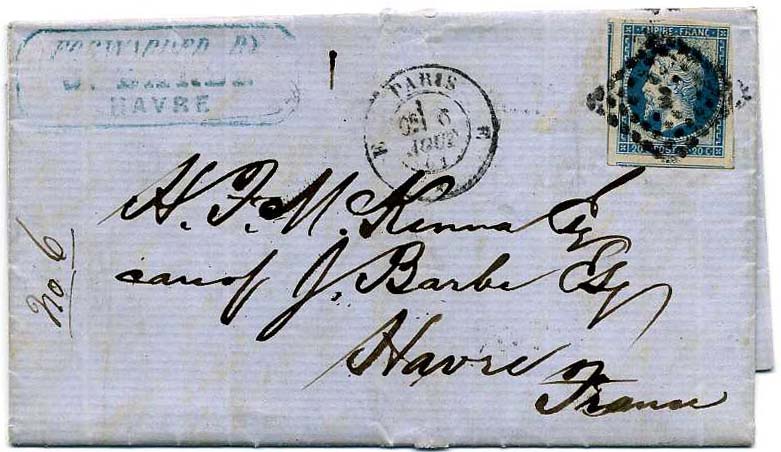 FORWARDED BY
J. BARBE
HAVRE
PARIS
6
AOUT
61
E
E
EMPIRE FRANC
20 C POSTES 20 C
H. F. McKenna Esq
care of J. Barbe Esq
Havre
France
No 6